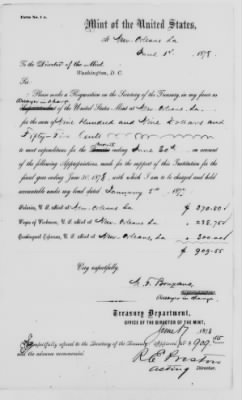 Form No. 1 a.
Mint of the United States,
At New Orleans La
June 1st 1878.
To the Director of the Mint
Washington, D. C.
Sir:
Please make a Requisition on the Secretary of the Treasury, in my favor as
Assayer in charge
of the United States Mint at New Orleans La.
for the sum of Nine Hundred and Nine Dollars and
Fifty-Five Cents
to meet expenditures for the Month ending June 30th on account
of the following Appropriations made for the support of this Institution for the
fiscal year ending June 30, 1878, with which I am to be charged and held
accountable under my bond dated January 2nd 187
Salaries, U. S. Mint at New Orleans La $ 370.80
Wages of Workmen, U. S. Mint at New Orleans La " 238.75
Contingent Expenses, U. S. Mint at New Orleans, La " 300.00
$ 909.55
Very respectfully,
M. F. Bonzano
Assayer in charge
Treasury Department,
OFFICE OF THE DIRECTOR OF THE MINT,
June 17 1878
Respectfully referred to the Secretary of the Treasury. Approved for $ 909.55
R. E. Preston
Acting Director.